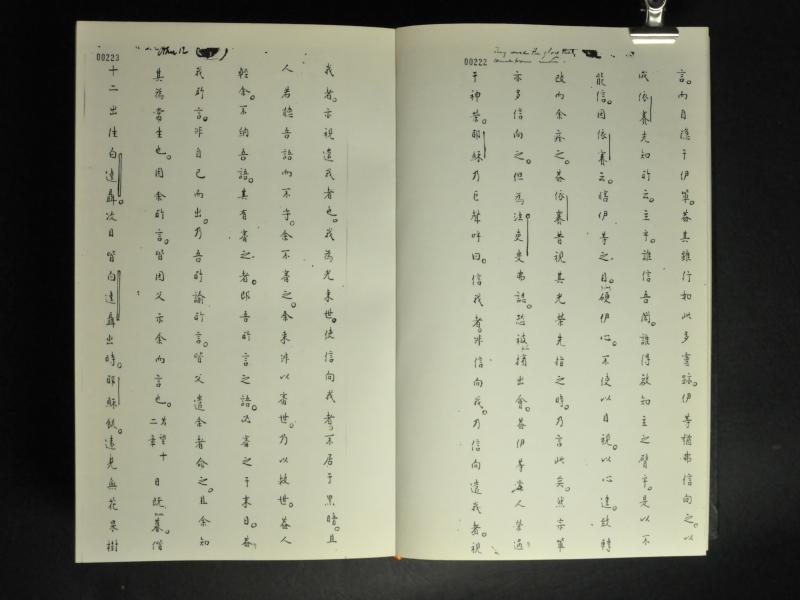 00222
言。而自隱于伊軍。蓋其雖行如此多靈跡。伊等猶弗信向之。以
成依賽先知所云。主乎。誰信吾聞。誰得啟知主之臂乎。是以不
能信。因依賽云。瞎伊等之目。硬伊心。不使以目視。以心達致轉
改而余痊之。蓋依賽昔視其光榮先指之時。乃言此矣。然宗軍
亦多信向之。但為法吏曼弗認。恐被捕出會。蓋伊等寧人榮過
于神榮。耶穌乃巨聲呼曰。信我者。非信向我。乃信向遣我者。視
00223
我者。亦視遣我者也。我為光來世。使信向我者。不居于黑暗。且
人若聽吾語而不守。余不審之。余來非以審世。乃以救世。蓋人
輕余。不納吾語。其有審之者。即吾所言之語。必審之于末日。蓋
我所言。非自己而出。乃吾所諭所言。皆父遣余者命之。且余知
其為常生也。因余所言。皆因父示余而言也。若望十二章 日既暮。偕
十二出往白達聶。次日皆白達聶出時。耶穌飢。遠見無花果樹